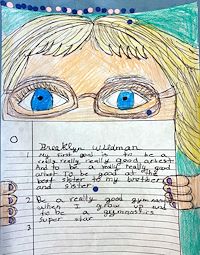 Brooklyn Wildman
1 My first goal is to be a
really really really good artest
And to be a really really good
at what To be good at the
best sister to my brother
and sister
2 Be a really good gymnast
when I grow up and
to be a gymnastics
super star
3